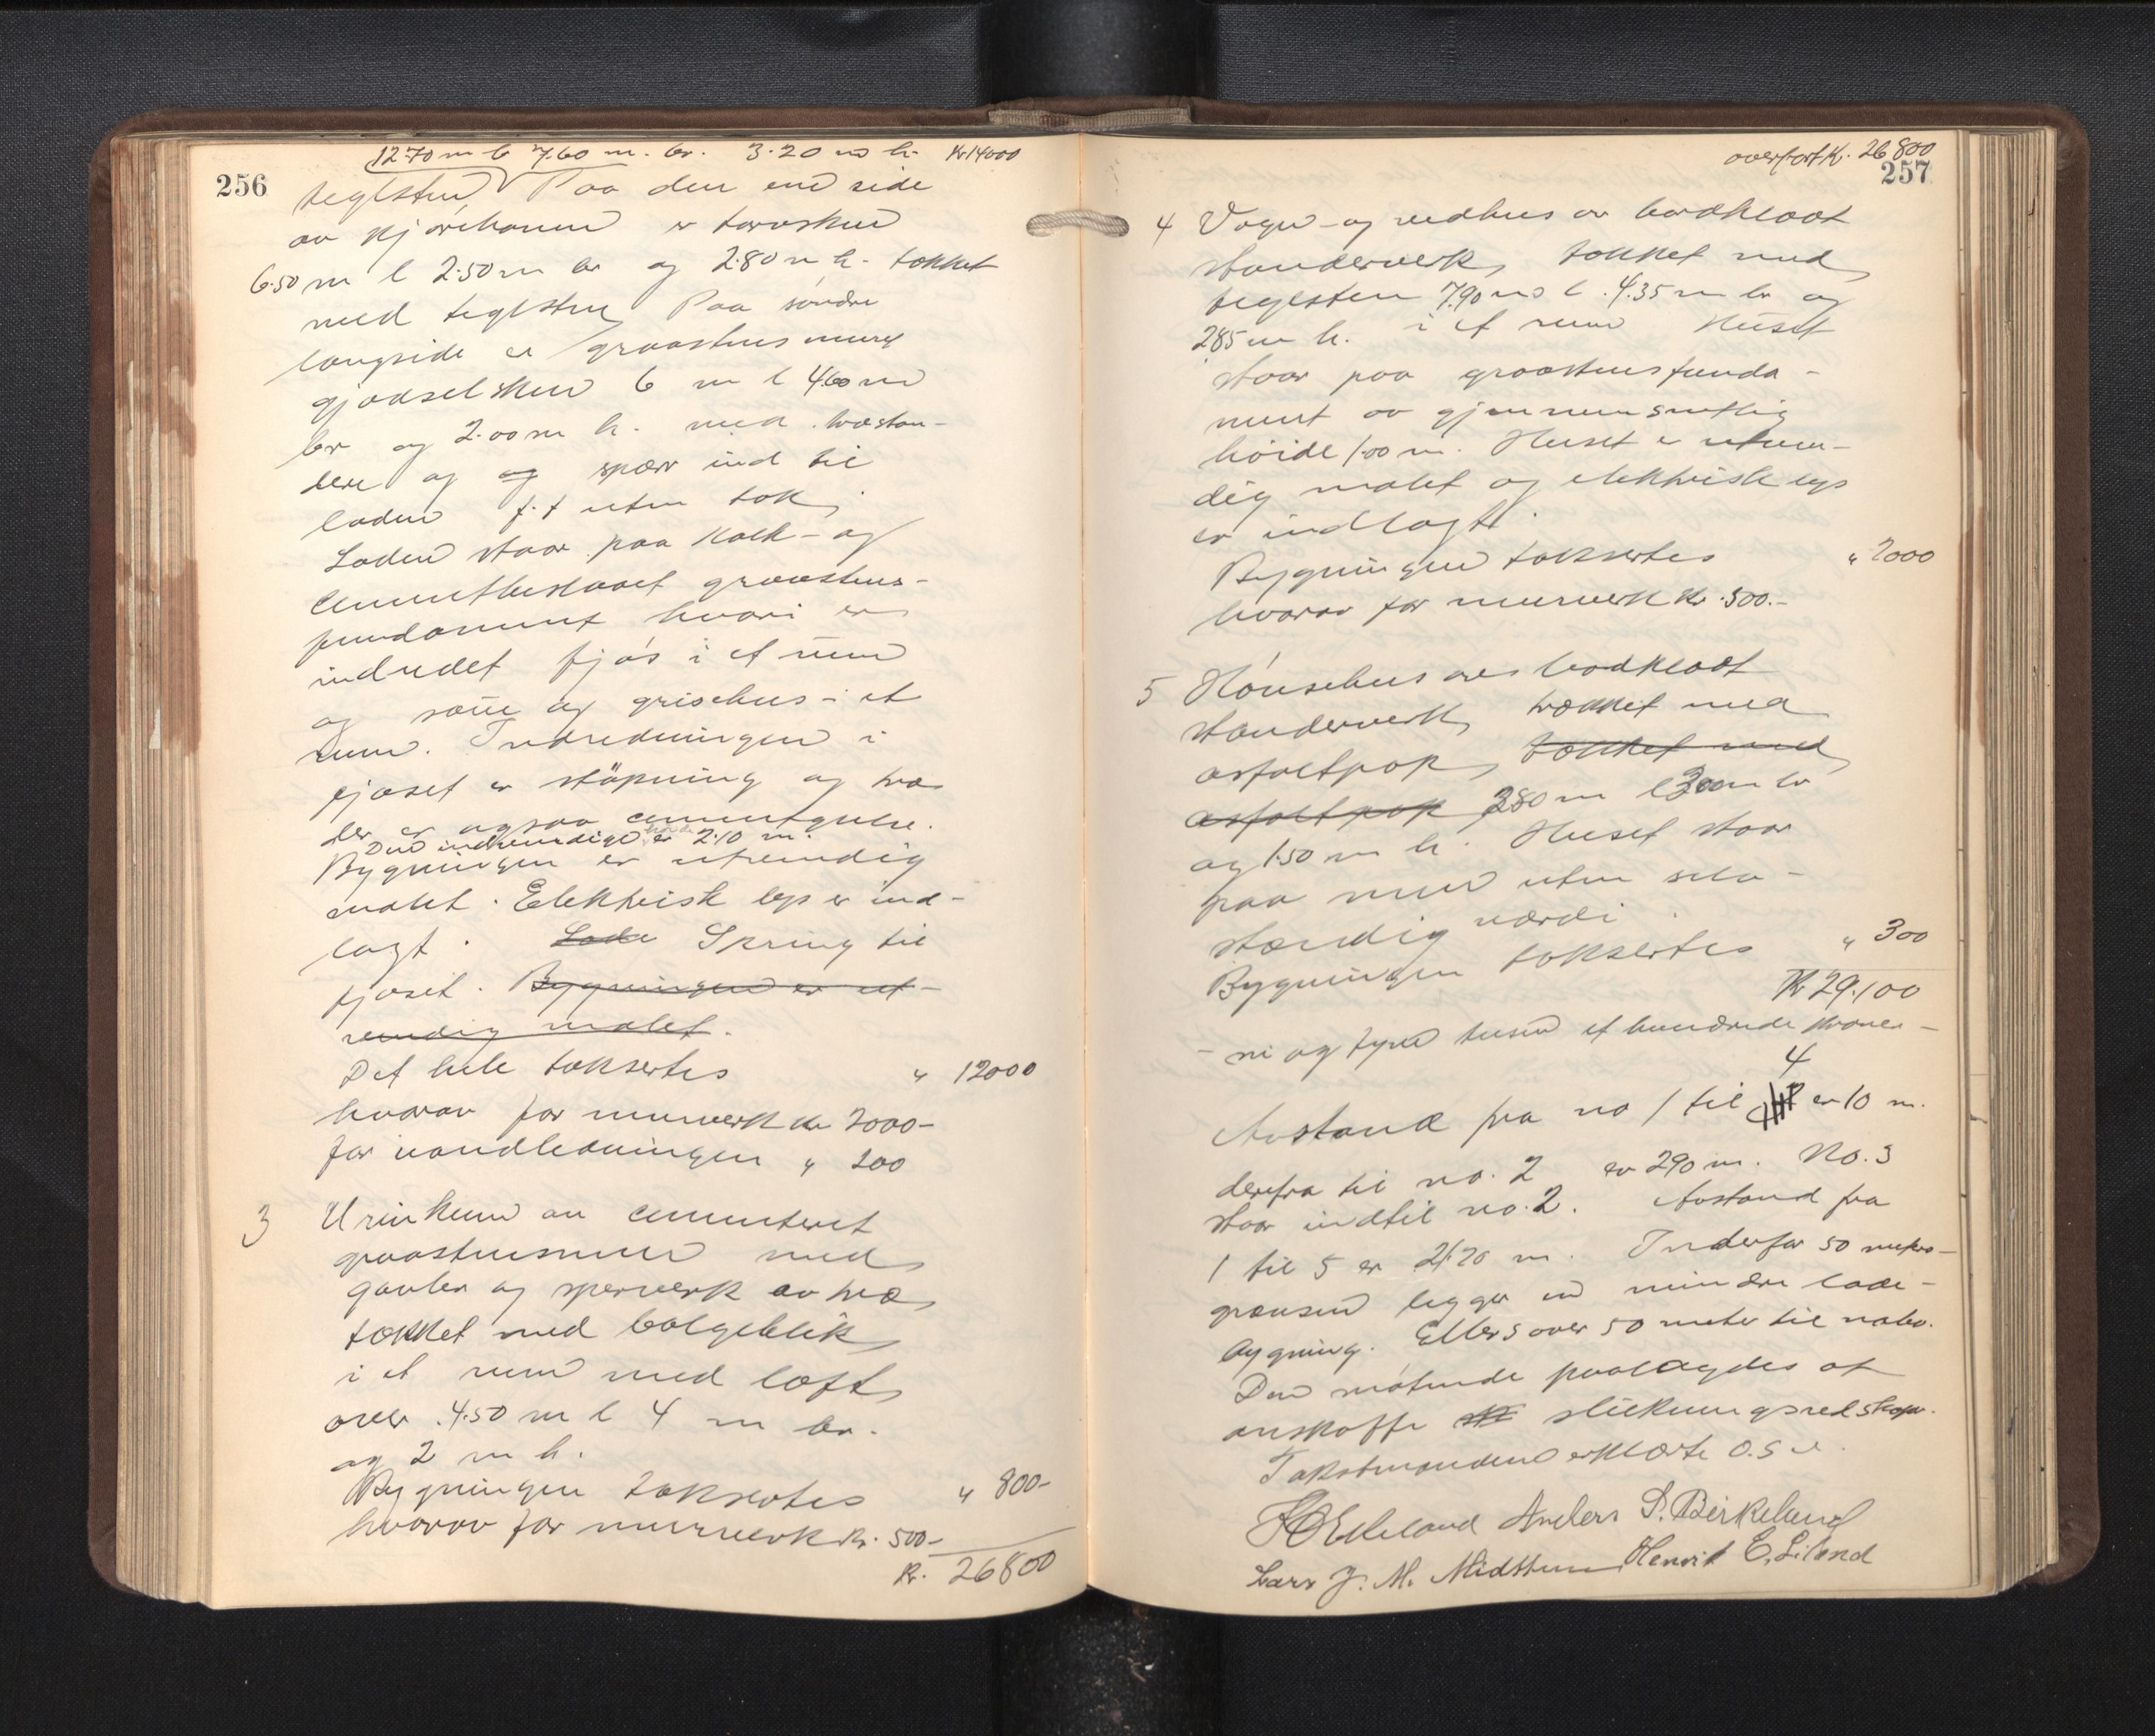 12.70 m l 7.60 m. br. 3.20 m h. Kr 14000
256
teglsten, Paa den ene side
av kjørebanen er torvskur
6.50 m l 2.50 m br og 2.80 m h. tækket
med teglsten, Paa søndre
langside er graastensmuret
gjødselskur 6 m l 4.60 m
br og 2.00 m h. med træstan-
dere og og sperr ind til
laden f.t uten tak.
Laden staar paa kalk- og
cementbeslaaet graastens-
fundament hvori er
indredet fjøs i et rum
og saue og grisehus i et
rum. Indredningen i
fjøset er støpning og træ
der er ogsaa cementgulv.
Den indvendige høide er 2.10 m.
Bygningen er utvendig
malet. Elektrisk lys er ind-
lagt. Lade Spring til
fjøset. Bygningen er ut-
vendig malet.
Det hele taksertes " 12000
hvorav for murverk kr 2000-
for vandledningen " 200
3 Urinkum av cementeret
graastensmur med
gavler og sperverk av træ,
tækket med bølgeblik,
i et rum med loft
over 4.50 m l 4 m br.
og 2 m h.
Bygningen taksertes " 800-
hvorav for murverk kr. 500-
Kr. 26800
overført Kr. 26800
257
4 Vogn- og vedhus av bordklædt
standerverk, tækket med
teglsten 7.90 m l. 4.35 m br og
2.85 m h. i et rum Huset
staar paa graastensfunda-
ment av gjennemsnitlig
høide 1.00 m. Huset er utven-
dig malet og elektrisk lys
er indlagt.
Bygningen taksertes " 2000
hvorav for murverk kr. 500.-
5 Hønsehus av bordklædt
standerverk, tækket med
asfaltpap, tækket med
asfaltpap 3.80 m l 3.00 m br
og 1.50 m h. Huset staar
paa mur uten selv-
stændig værdi.
Bygningen taksertes " 300
Kr 29.100
- ni og tyve tusen et hundrede kroner -
4
Avstand fra no 1 til er 10 m.
derfra til no. 2 er 290 m. No. 3
staar indtil no. 2. Avstand fra
1 til 5 er 21.20 m. Indenfor 50 meters-
grænsen ligger en mindre lade-
bygning. Ellers over 50 meter til nabo.
Den møtende paalagdes at
anskaffe slukningsredskap.
Takstmændene erklærte o.s.v.
Anders S. Birkeland
Lars J. M. Midttun Henrik E. Liland